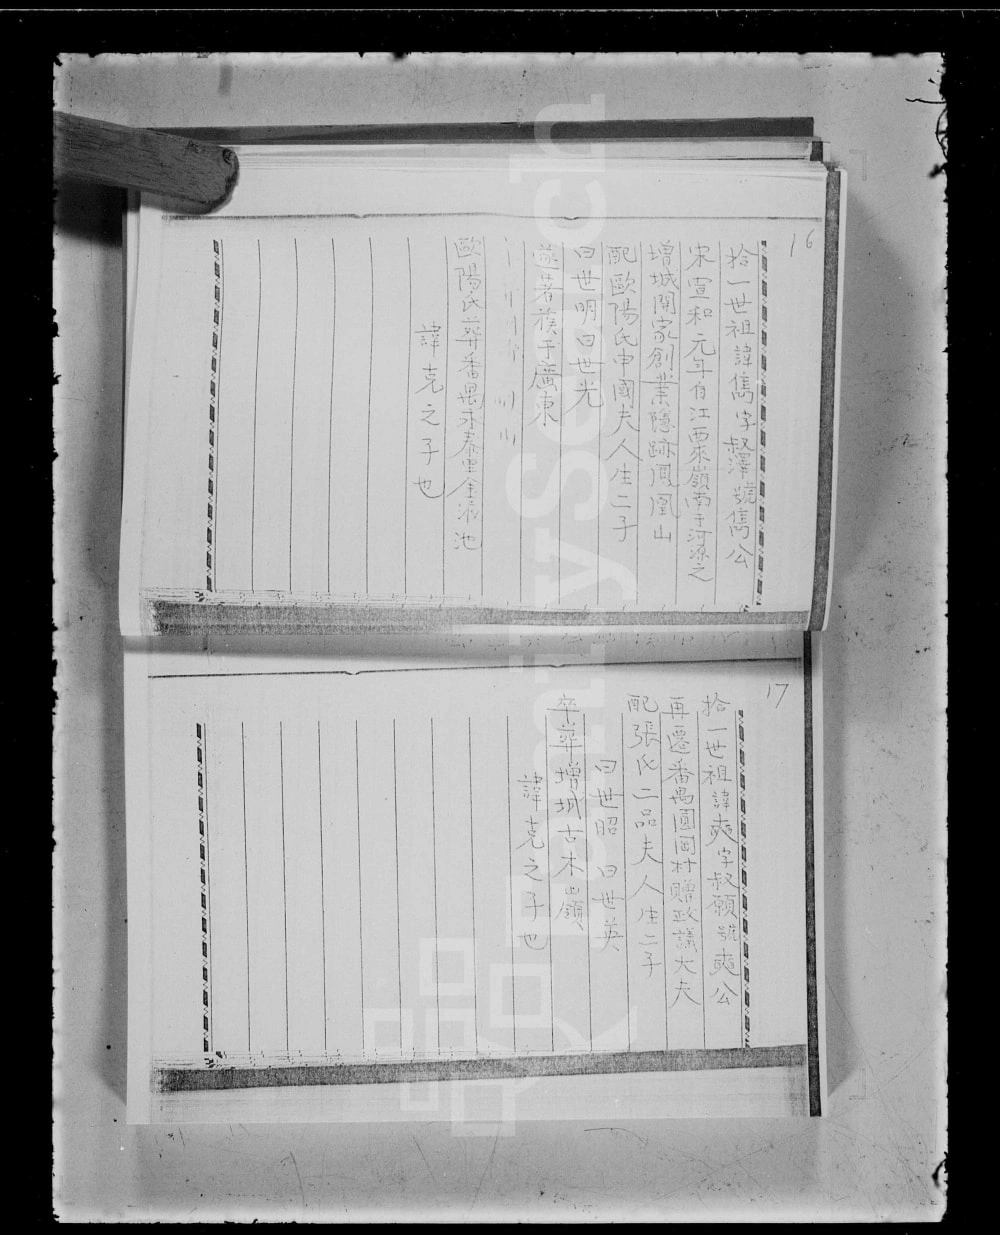 16
拾一世祖諱儁字叔澤號儁公
宋宣和元年自江西來嶺南于河源之
增城開家創業隱跡鳳凰山
配歐陽氏申國夫人生二子
曰世明曰世光
遂著族于廣東
歐陽氏葬番禺永泰里金 池
諱克之子也
17
拾一世祖諱奭字叔願號奭公
再遷番禺 村贈政議大夫
配張氏二品夫人生二子
曰世昭 曰世英
卒葬增城古木嶺
諱克之子也